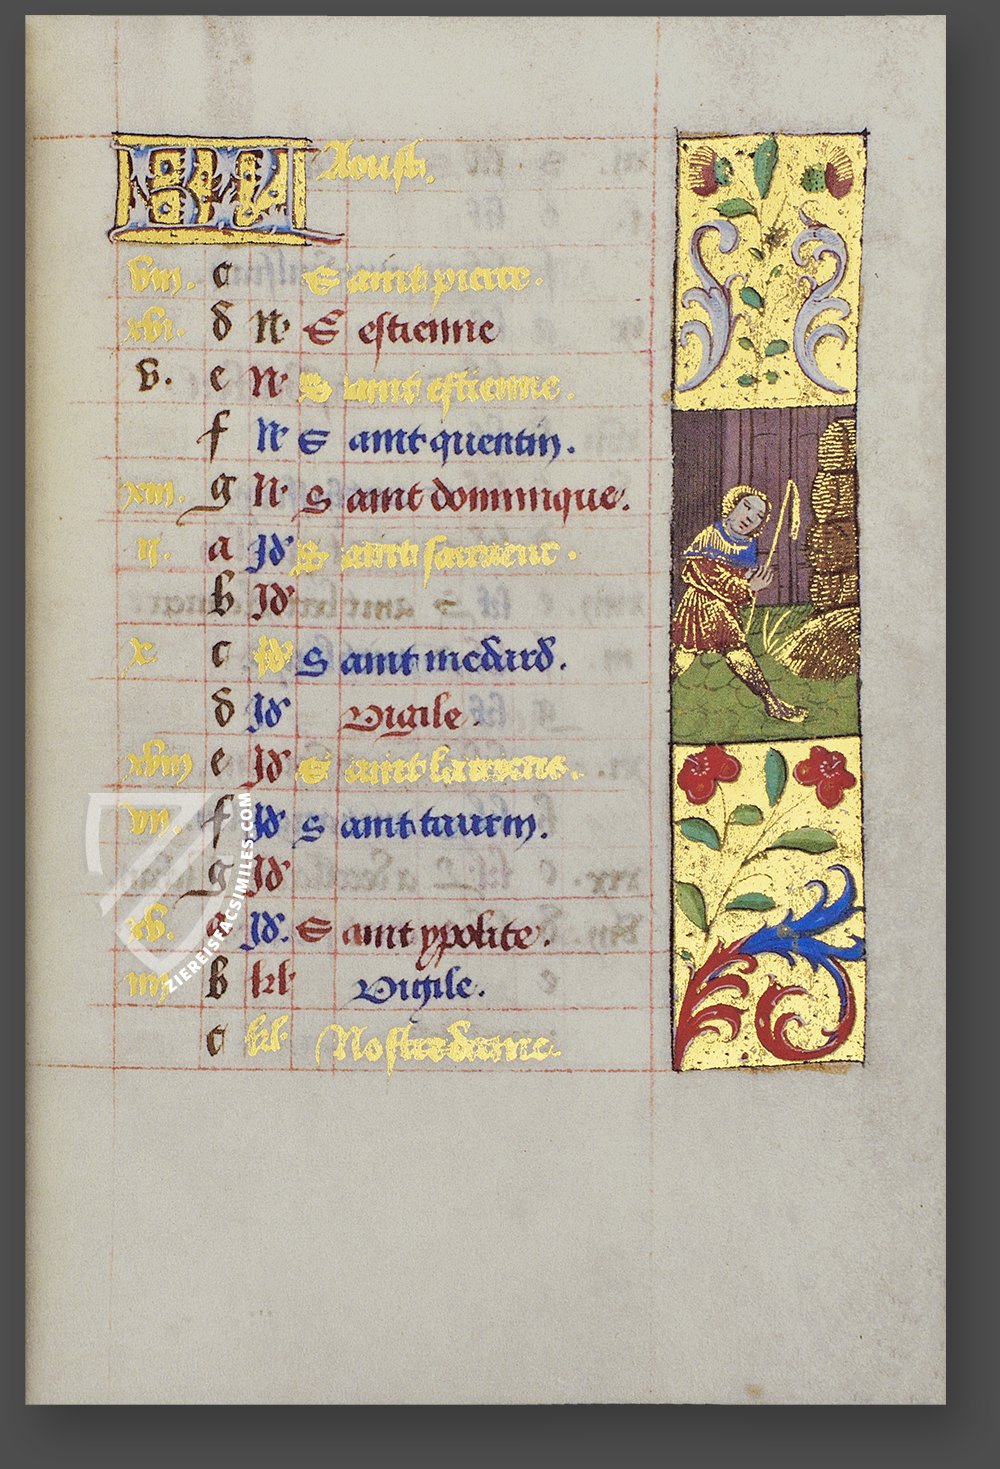 KL Aoust.
viii. c Saint pierre.
xvi. d N. S estienne
v. e N. Saint estienne.
f N. Saint quentin.
xiii. g N. Saint dominique.
ii. a Id Saint sauveur.
b Id
x c Id Saint medard.
d Id Vigile.
xviii e Id Saint laurens.
vii. f Id Saint taurin.
g Id
xv. a Id. Saint ypolite.
iiii b kl. Vigile.
c kl. Nostre dame.
ZIEREISFACSIMILES.COM